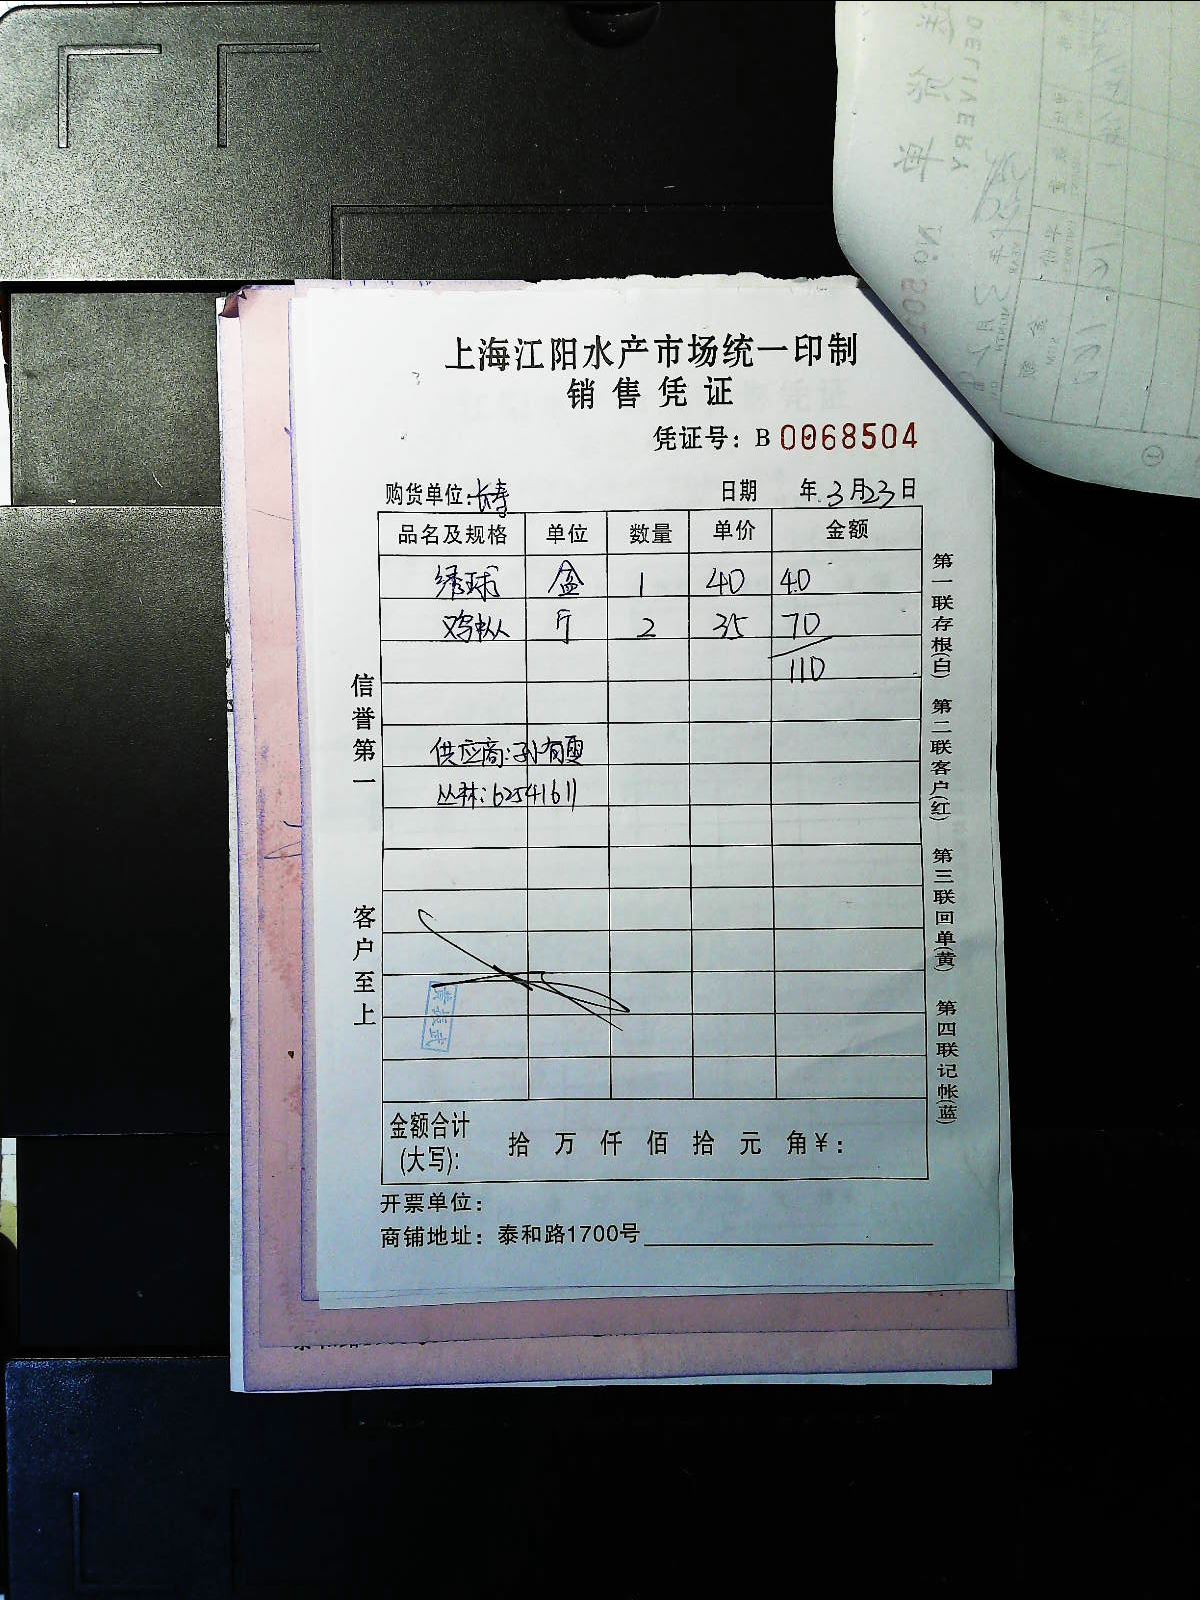 上海江阳水产市场统一印制
销售凭证
凭证号：B 0068504
购货单位：长寿 日期 年 3月23日
品名及规格 单位 数量 单价 金额
绣球 盒 1 40 40
鸡枞 斤 2 35 70
110
供应商：孙有雯
丛林：62541611
信誉第一
客户至上
第一联存根(白) 第二联客户(红) 第三联回单(黄) 第四联记帐(蓝)
金额合计
(大写)： 拾 万 仟 佰 拾 元 角 ¥：
开票单位：
商铺地址：泰和路1700号
DELIVERY